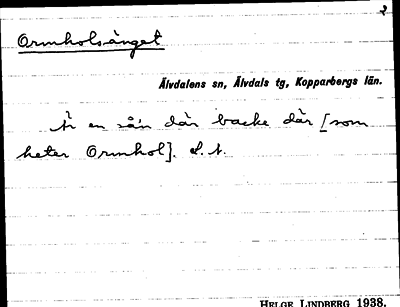 2
Ormholsänget
Älvdalens sn, Älvdals tg, Kopparbergs län.
Är en sån där backe där [som
heter Ormhol]. S. 1.
HELGE LINDBERG 1938.